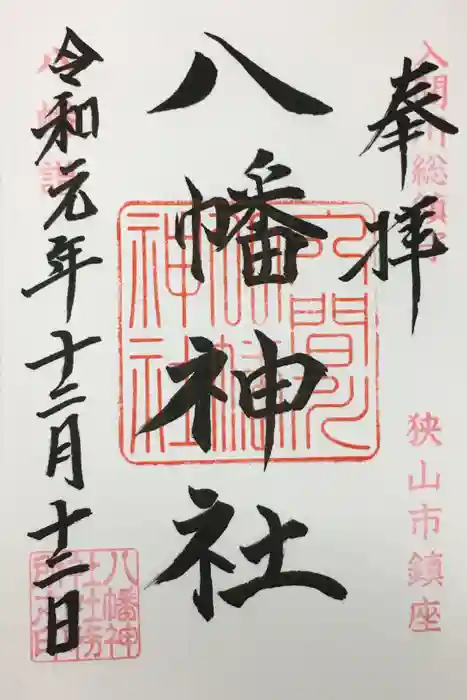 奉拝
入間川総鎮守
狭山市鎮座
八幡神社
入間川
八幡
神社
令和元年十二月十二日
八幡神
社社務
所之印